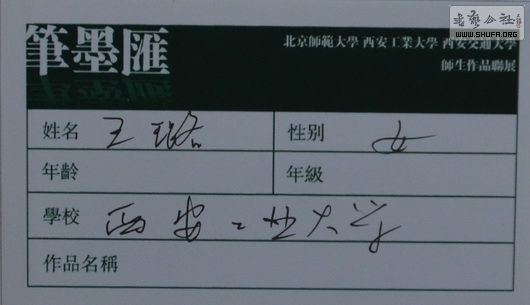 書藝公社
WWW.SHUFA.ORG
筆墨匯
北京師範大學 西安工業大學 西安交通大學
師生作品聯展
姓名 王璐 性别 女
年齡 年級
學校 西安工业大学
作品名稱